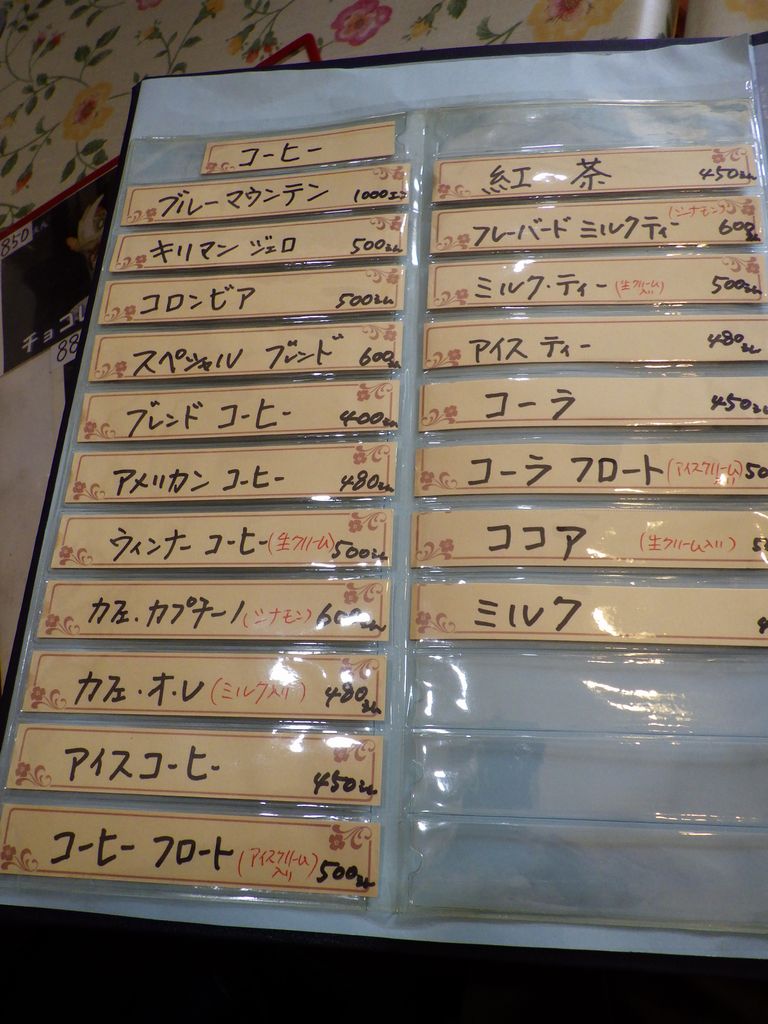 コーヒー
ブルーマウンテン 1000えん
キリマンジェロ 500えん
コロンビア 500えん
スペシャル ブレンド 600えん
ブレンド コーヒー 400えん
アメリカン コーヒー 480えん
ウィンナー コーヒー(生クリーム) 500えん
カフェ・カプチーノ(シナモン) 600えん
カフェ・オ・レ(ミルク入り) 480えん
アイスコーヒー 450えん
コーヒー フロート(アイスクリーム入り) 500えん
紅 茶 450えん
フレーバード ミルクティー (シナモン) 600えん
ミルク・ティー(生クリーム入り) 500えん
アイス ティー 480えん
コーラ 450えん
コーラ フロート(アイスクリーム入り) 50
ココア (生クリーム入り) 5
ミルク 4
850えん
チョコレ
88